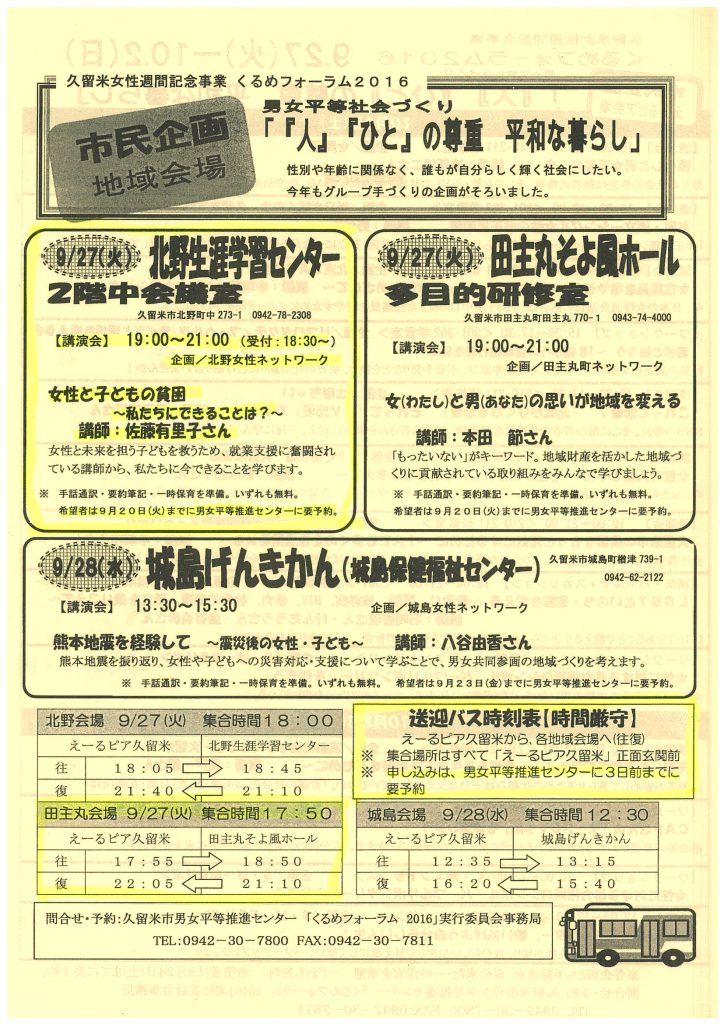 久留米女性週間記念事業 くるめフォーラム2016
市民企画
地域会場
男女平等社会づくり
「『人』『ひと』の尊重 平和な暮らし」
性別や年齢に関係なく、誰もが自分らしく輝く社会にしたい。
今年もグループ手づくりの企画がそろいました。
9/27(火) 北野生涯学習センター
2階中会議室
久留米市北野町中 273-1 0942-78-2308
【講演会】 19:00～21:00 (受付:18:30～)
企画／北野女性ネットワーク
女性と子どもの貧困
～私たちにできることは?～
講師：佐藤有里子さん
女性と未来を担う子どもを救うため、就業支援に奮闘され
ている講師から、私たちに今できることを学びます。
※ 手話通訳・要約筆記・一時保育を準備。いずれも無料。
希望者は9月20日(火)までに男女平等推進センターに要予約。
9/27(火) 田主丸そよ風ホール
多目的研修室
久留米市田主丸町田主丸 770-1 0943-74-4000
【講演会】 19:00～21:00
企画／田主丸町ネットワーク
女(わたし)と男(あなた)の思いが地域を変える
講師：本田 節さん
「もったいない」がキーワード。地域財産を活かした地域づ
くりに貢献されている取り組みをみんなで学びましょう。
※ 手話通訳・要約筆記・一時保育を準備。いずれも無料。
希望者は9月20日(火)までに男女平等推進センターに要予約。
9/28(水) 城島げんきかん(城島保健福祉センター)
久留米市城島町楢津 739-1
0942-62-2122
【講演会】 13:30～15:30 企画／城島女性ネットワーク
熊本地震を経験して ～震災後の女性・子ども～ 講師：八谷由香さん
熊本地震を振り返り、女性や子どもへの災害対応・支援について学ぶことで、男女共同参画の地域づくりを考えます。
※ 手話通訳・要約筆記・一時保育を準備。いずれも無料。 希望者は9月23日(金)までに男女平等推進センターに要予約。
北野会場 9/27(火) 集合時間18:00
えーるピア久留米 北野生涯学習センター
往 18:05 18:45
復 21:40 21:10
送迎バス時刻表【時間厳守】
えーるピア久留米から、各地域会場へ(往復)
※ 集合場所はすべて「えーるピア久留米」正面玄関前
※ 申し込みは、男女平等推進センターに3日前までに
要予約
田主丸会場 9/27(火) 集合時間17:50
えーるピア久留米 田主丸そよ風ホール
往 17:55 18:50
復 22:05 21:10
城島会場 9/28(水) 集合時間12:30
えーるピア久留米 城島げんきかん
往 12:35 13:15
復 16:20 15:40
問合せ・予約:久留米市男女平等推進センター 「くるめフォーラム 2016」実行委員会事務局
TEL:0942-30-7800 FAX:0942-30-7811